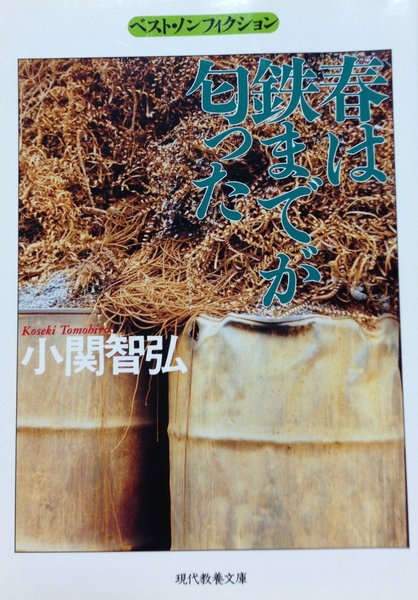 ベスト・ノンフィクション
春は
鉄までが
匂った
Koseki Tomohiro
小関智弘
現代教養文庫